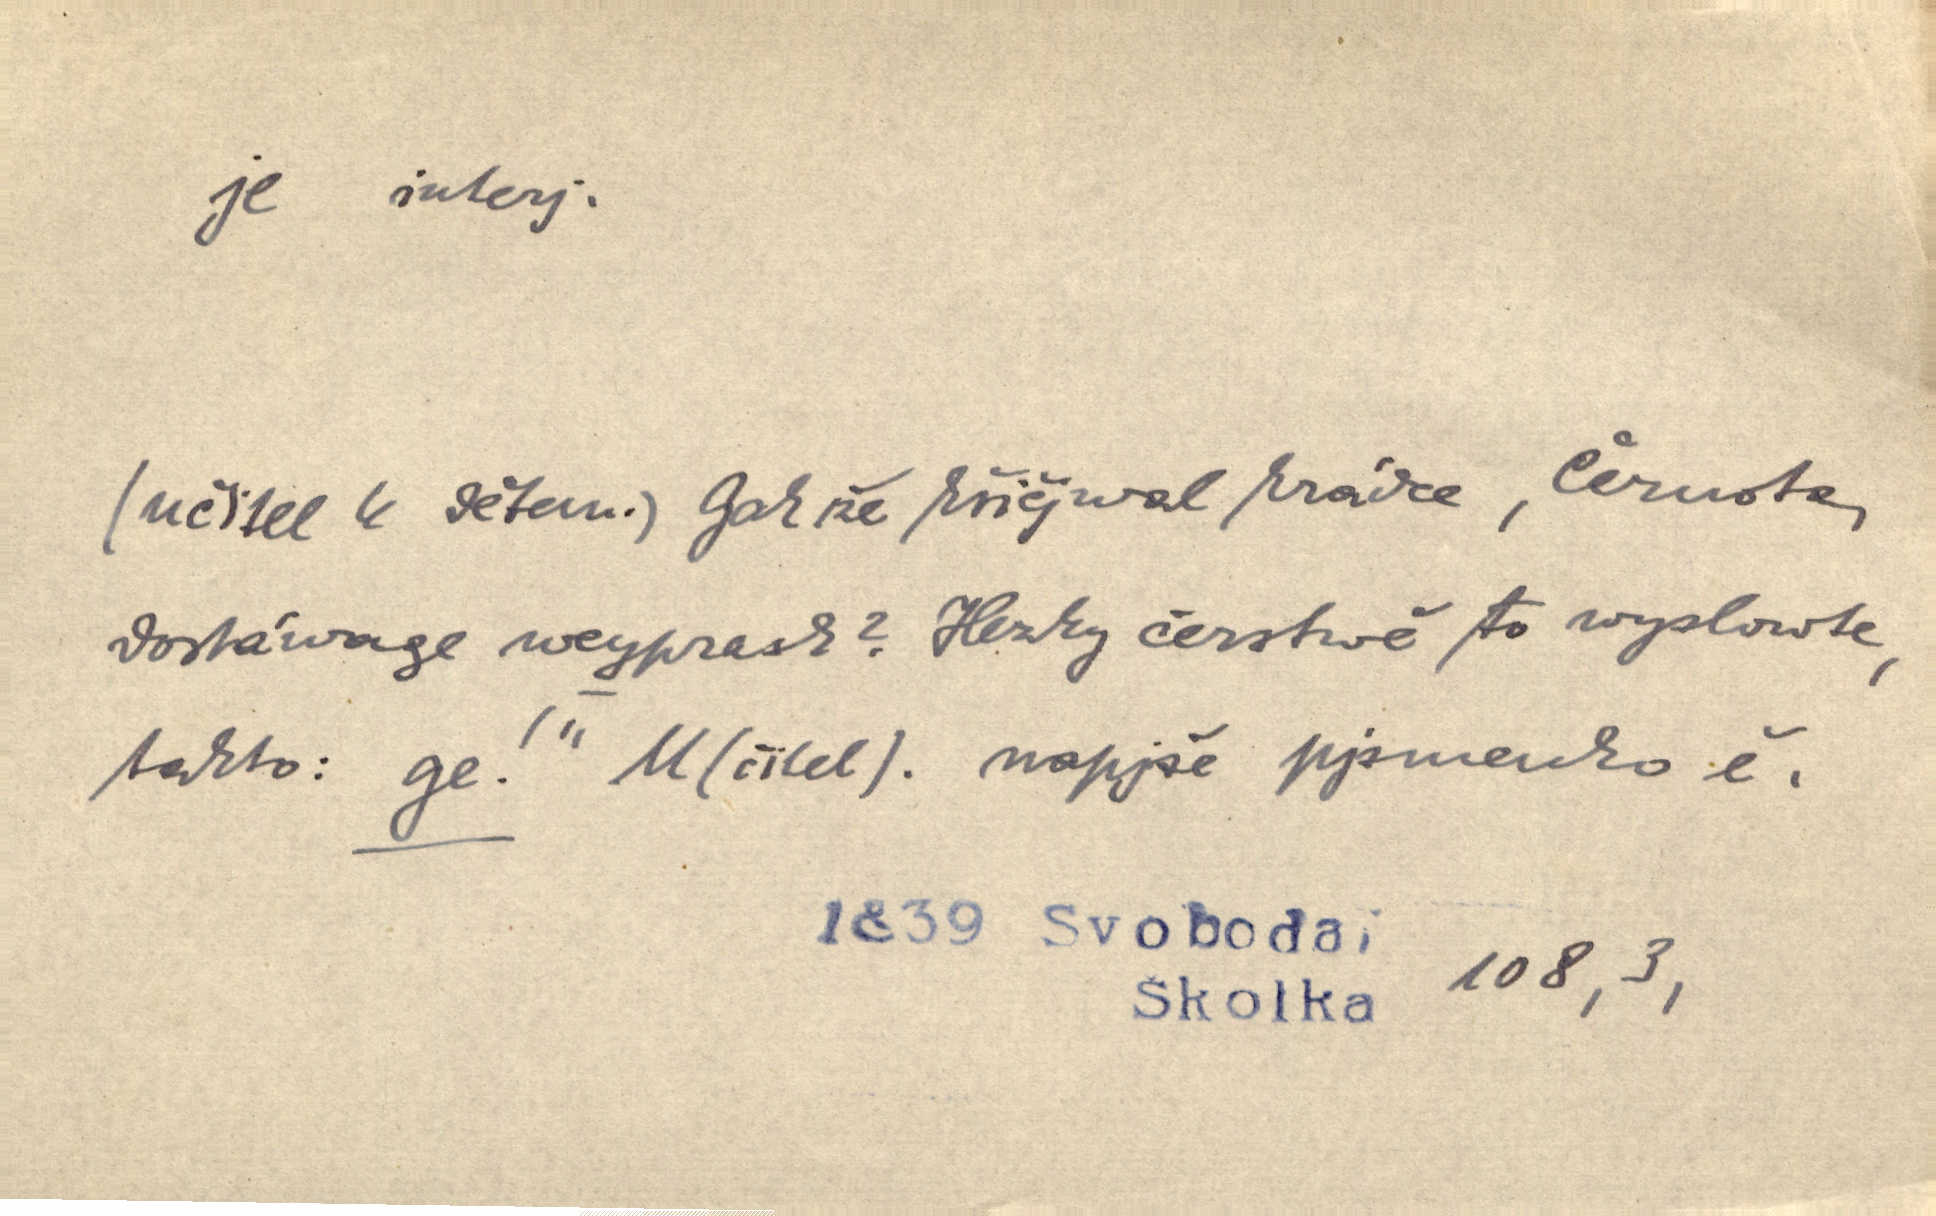 je interj.
(učitel k dětem.) Gakže křičjwal hrádce, Černota,
dostáwage weyprask? Hezky čerstwě to wyslowte,
takto: ge!" U(čitel). napjše pjsmenko ě.
1839 Svoboda
Školka 108, 3,